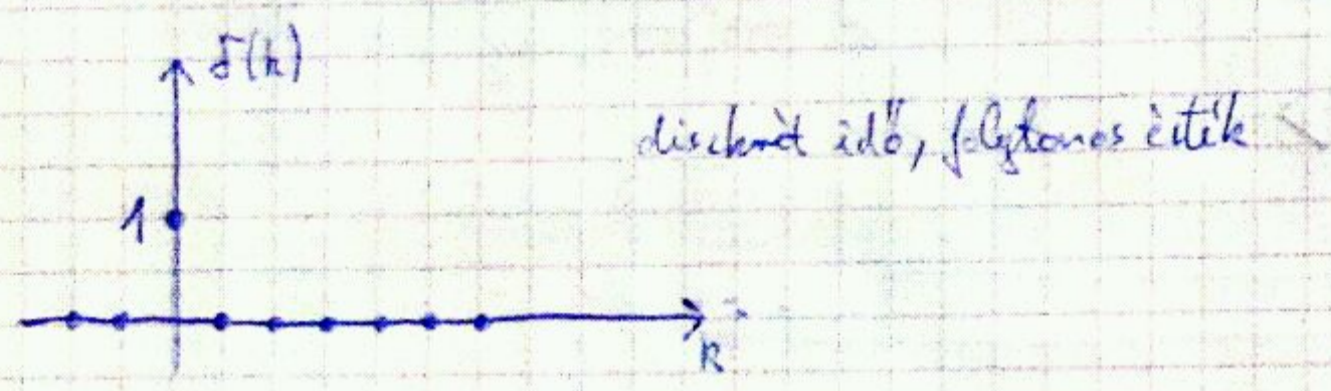 δ(k)
diszkrét idő, folytonos érték
1
k